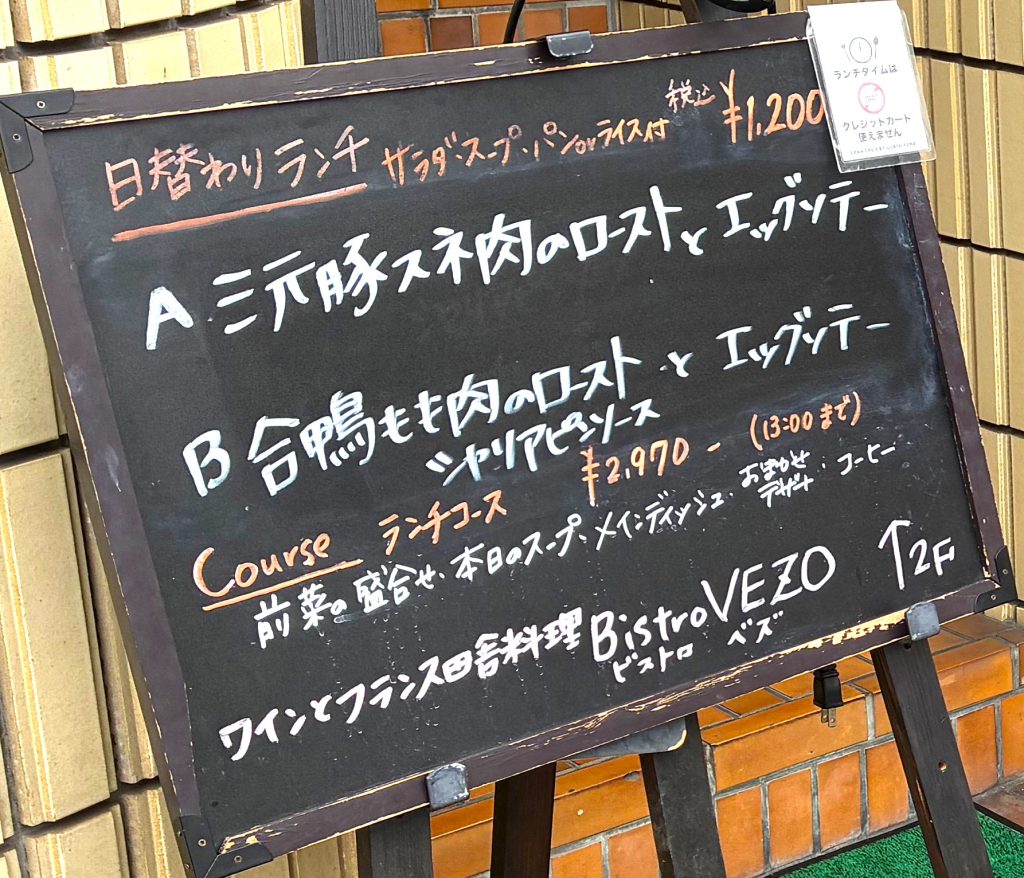 日替わりランチ サラダ・スープ・パンorライス付 税込 ¥1,200
ランチタイムは
クレジットカード
使えません
A 三元豚スネ肉のローストと エッグソテー
B 合鴨もも肉のローストと エッグソテー
シャリアピンソース
Course ランチコース ¥2,970- (13:00まで)
前菜の盛合せ・本日のスープ・メインディッシュ・おまかせデザート・コーヒー
ワインとフランス田舎料理 Bistro VEZO ↑2F
ビストロ ベズ